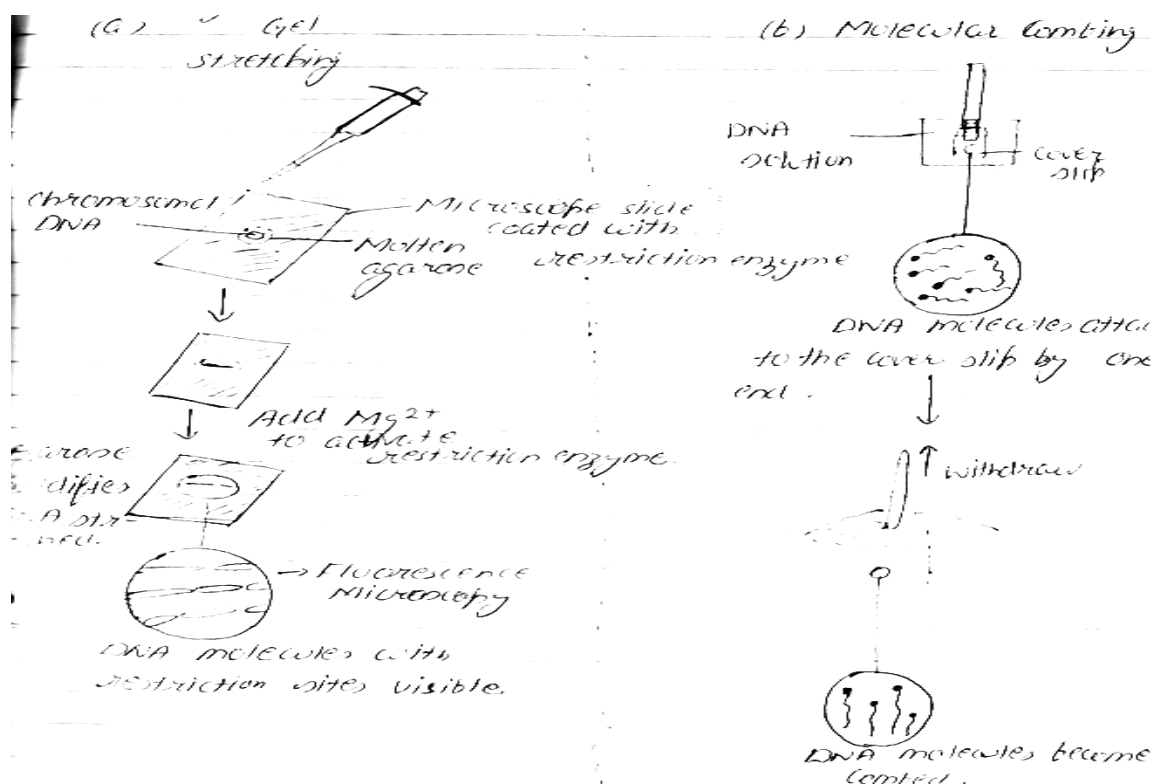 (a) Gel
stretching
chromosomel
DNA
Microscope slide
coated with
restriction enzyme
Molten
agarose
Add Mg2+
to activate
restriction enzyme.
arose
difies
A str-
ned.
→ Fluorescence
Microscopy
DNA molecules with
restriction sites visible.
(b) Molecular Combing
DNA
solution
cover
slip
DNA molecules attac
to the cover slip by one
end.
withdraw
DNA molecules become
combed.